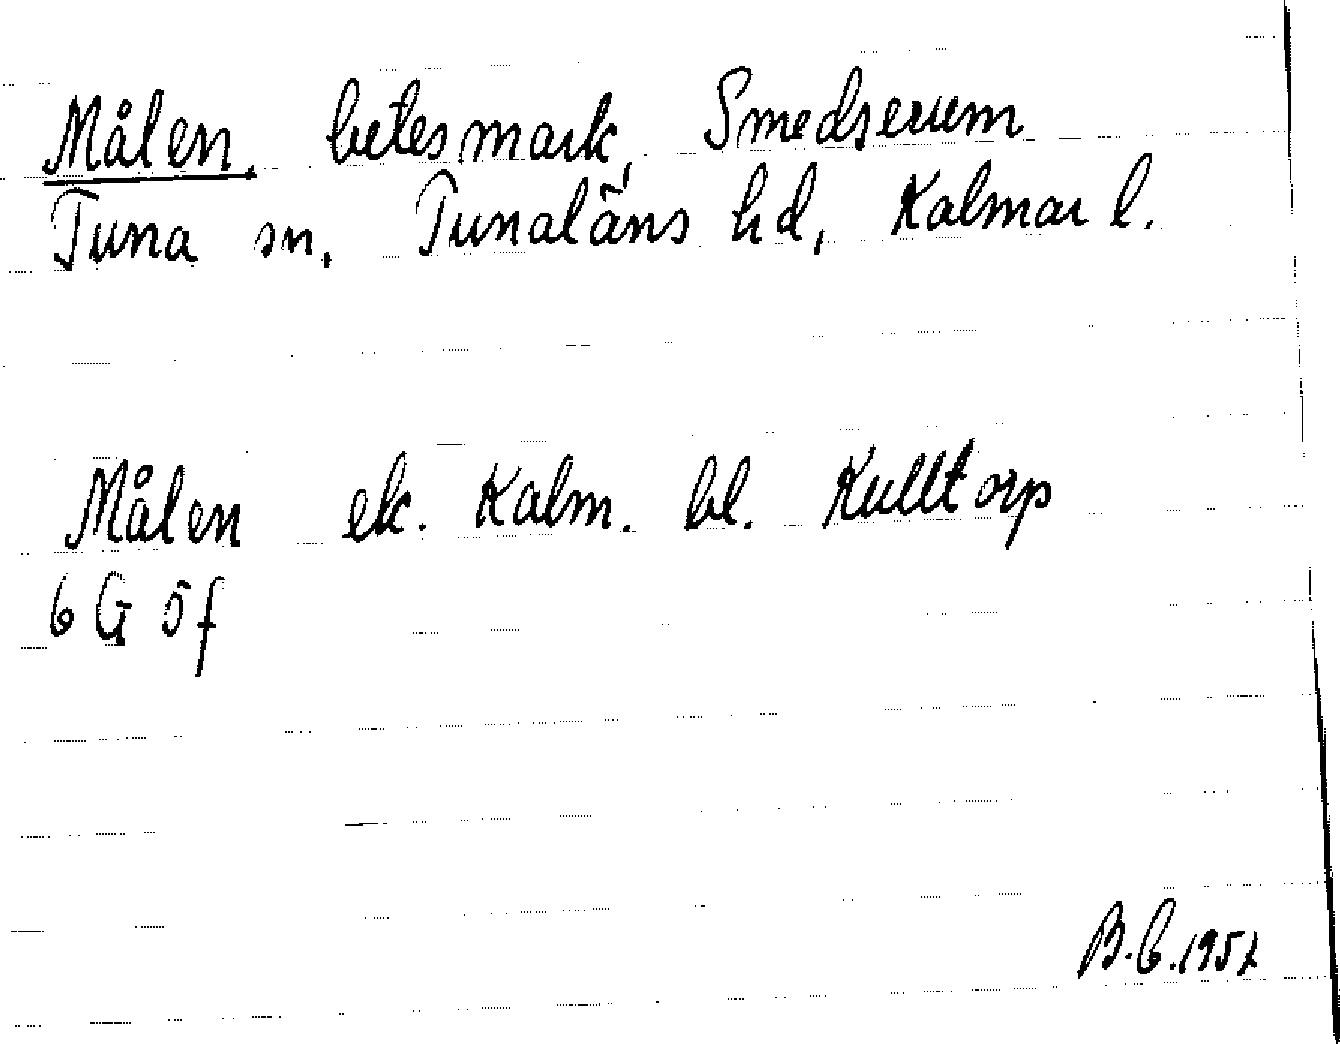 Målen, betesmark, Smedserum
Tuna sn, Tunaläns hd, Kalmar l.
Målen ek. Kalm. bl. Kulltorp
6 G 5 f
B.G. 1957